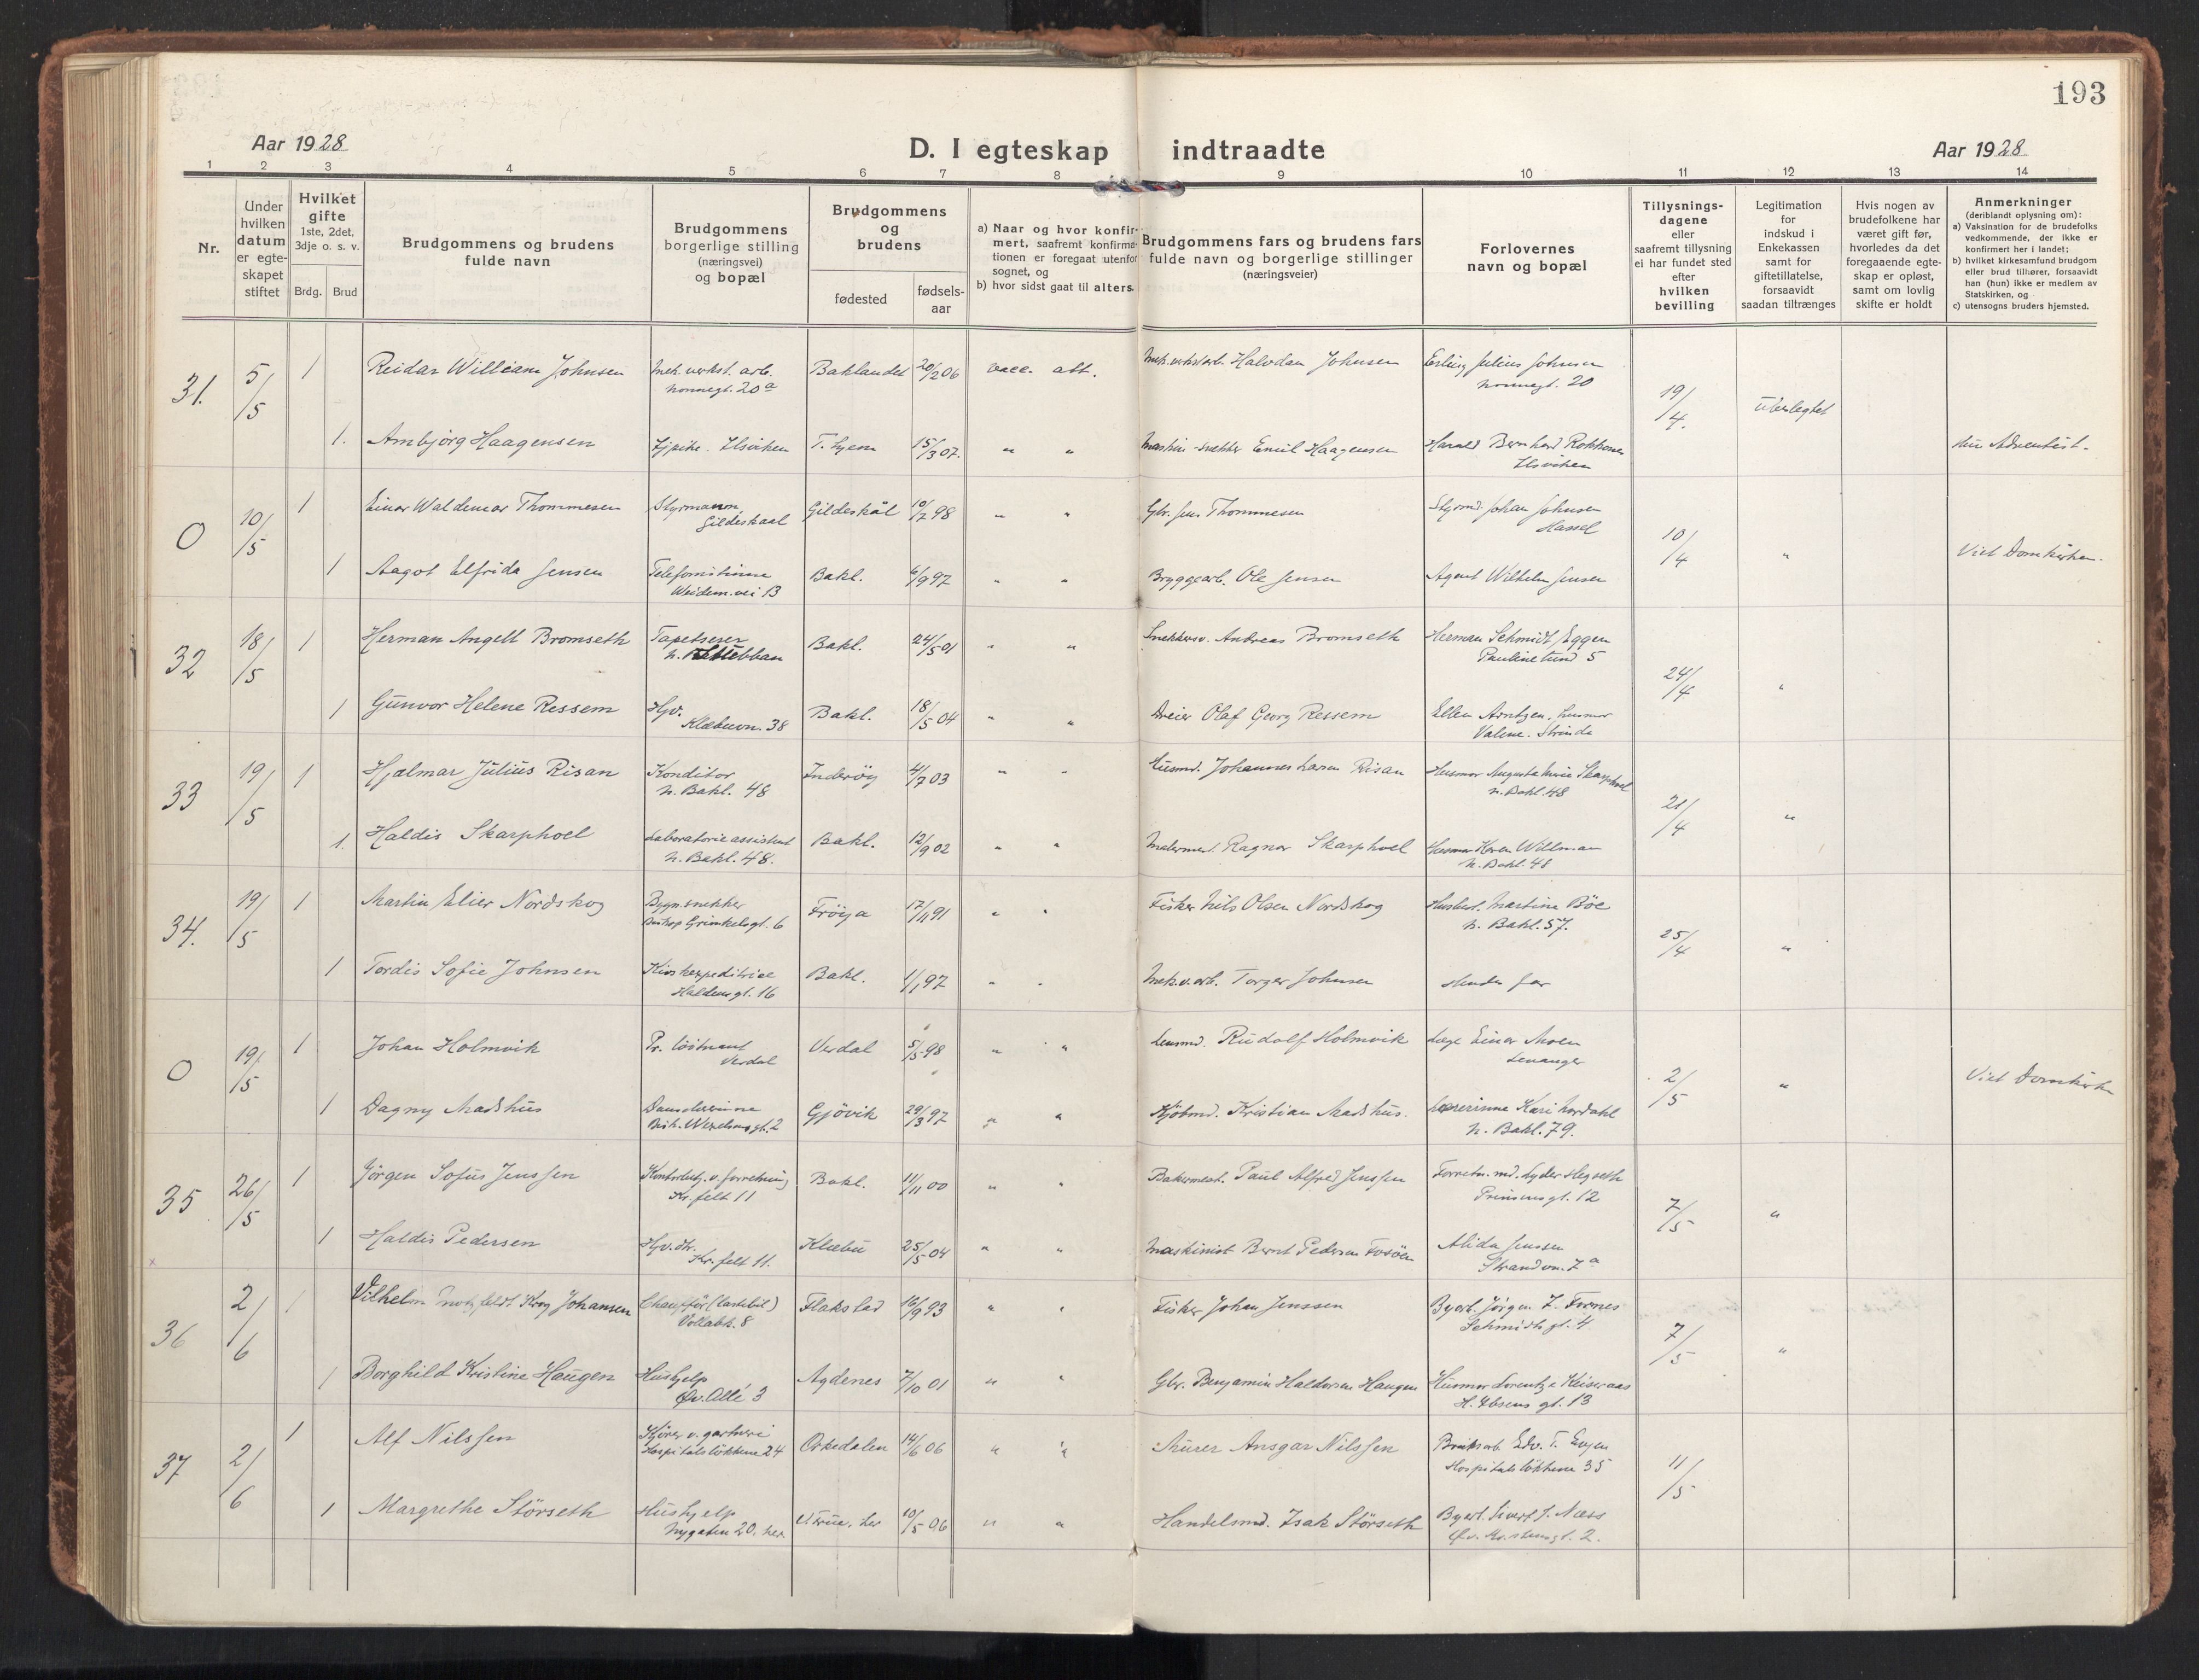 193
Aar 1928
D. I egteskap indtraadte
Aar 1928
1 2 3 4 5 6 7 8 9 10 11 12 13 14
Nr.
Under hvilken datum er egte-skapet stiftet
Hvilket gifte 1ste, 2det, 3dje o. s. v.
Brdg. Brud
Brudgommens og brudens fulde navn
Brudgommens borgerlige stilling (næringsvei) og bopæl
Brudgommens og brudens
fødested
fødsels-aar
a) Naar og hvor konfir-mert, saafremt konfirma-tionen er foregaat utenfor sognet, og
b) hvor sidst gaat til alters.
Brudgommens fars og brudens fars fulde navn og borgerlige stillinger (næringsveier)
Forlovernes navn og bopæl
Tillysnings-dagene eller saafremt tillysning ei har fundet sted efter hvilken bevilling
Legitimation for indskud i Enkekassen samt for giftetillatelse, forsaavidt saadan tiltrænges
Hvis nogen av brudefolkene har været gift før, hvorledes da det foregaaende egte-skap er opløst, samt om lovlig skifte er holdt
Anmerkninger (deriblandt oplysning om):
a) Vaksination for de brudefolks vedkommende, der ikke er konfirmert her i landet;
b) hvilket kirkesamfund brudgom eller brud tilhører, forsaavidt han (hun) ikke er medlem av Statskirken, og
c) utensogns bruders hjemsted.
31. 5/5 1 Reidar William Johnsen Mek. verkst. arb. Nonnegt. 20a Baklandet 20/2 06 vacc. att. Mek. verkst. arb. Halvdan Johnsen Erling Julius Johnsen Nonnegt. 20 19/4.
1. Ambjörg Haagensen Ilsviken T.hjem 15/3 07. " " Maskinsnekker Emil Haagensen Harald Bernhard Rokkones Ilsviken Adventist.
0 10/5 1 Einar Waldemar Thommesen Styrmann, Gildeskaal Gildeskål 10/7 98 " " Gbr. Jens Thommesen Styrmd. Johan Johnsen Hassel 10/4 " Viet Domkirken.
1 Aagot Elfrida Jensen Telefonistinne Weidem.vei 13 Bakl. 6/9 97 " " Bryggearb. Ole Jensen Agent Wilhelm Jensen
32 18/5 1 Herman Angell Bromseth Tapetserer Bakl. 24/5 01 " " Andreas Bromseth Herman Schmidt Eggen Paulinelund 5 24/4 "
1 Gunvor Helene Ressem Hjv. Klæbuvn. 38 Bakl. 18/5 04 " " Dreier Olaf Georg Ressem Ellen Arntzen, husmor Valene. Strinda
33 19/5 1 Hjalmar Julius Risan Konditor N. Bakl. 48 Inderøy 4/7 03 " " Husmd. Johannes Larsen Risan Husmor Augusta Marie Skarphoel N. Bakl. 48 21/4 "
1. Haldis Skarphoel Laboratorieassistent N. Bakl. 48. Bakl. 12/9 02 " " Malermest. Ragnar Skarphoel Husmor Karen Willman N. Bakl. 48
34. 19/5 1 Martin Elier Nordskog Bygn.snekker Biskop Grimkelsgt. 6 Fröya 17/11 91 " " Fisker Nils Olsen Nordskog Martine Böe N. Bakl. 57. 25/4 "
1 Tordis Sofie Johnsen Kioskexpeditrice Haldens gt. 16 Bakl. 1/1 97 " " Mek.v.arb. Torger Johnsen Hendes far
0 19/5 1 Johan Holmvik Pr. löitnant Verdal Verdal 5/5 98 " " Lensmd. Rudolf Holmvik Læge Einar Moen Levanger 2/5 " Viet Domkirken
1 Dagny Madshus Bisk. Wexelsensgt. 2 Gjövik 29/3 97 " " Kjöbmd. Kristian Madshus. Lærerinne Kari Nordahl N. Bakl. 79.
35 26/5 1 Jörgen Sofus Jenssen Kr. felt 11 Bakl. 11/11 00 " " Bakermest. Paul Alfred Jenssen Forretn.md. Lyder Hegseth Prinsensgt. 12 7/5 "
1 Haldis Pedersen Hjv. Kr. felt 11. Klæbu 25/5 04 " " Maskinist Bernt Pedersen Fosöen Alida Jenssen Strandvn. 7a
36 2/6 1 Vilhelm Motzfeldt Krog Johansen Chauffør (lastebil) Vollabk. 8 Flakstad 16/9 93 " " Fisker Johan Jenssen Byarb. Jörgen Z. Fornes Schmidts gt. 4 7/5 "
1 Borghild Kristine Haugen Hushjelp Øv. Allé 3 Agdenes 7/10 01 " " Gbr. Benjamin Haldorsen Haugen Husmor Lorentze Keiseraas H. Ibsens gt. 13
37 2/6 1 Alf Nilssen Kjörer v. gartneri Hospitalslökkene 24 Orkedalen 14/6 06 " " Murer Ansgar Nilssen Bruksarb. Edv. T. Engen Hospitalslökkene 35 11/5
1 Margrethe Störseth Hushjelp Nygaten 20, her 10/5 06 " " Handelsmd. Isak Störseth Byarb. Sivert J. Næss